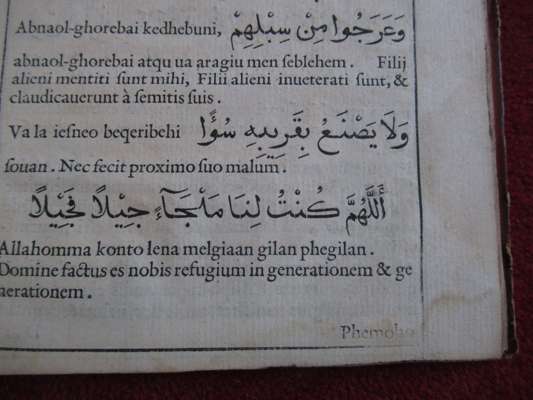 Abnaol-ghorebai kedhebuni, وَعَرَجُوا مِنْ سِبْلِهِمْ
abnaol-ghorebai atqu ua aragiu men seblehem. Filij
alieni mentiti sunt mihi, Filii alieni inueterati sunt, &
claudicauerunt à semitis suis.
Va la iesneo beqeribehi وَلَا يَصْنَعُ بِقَرِيبِهِ سُؤًا
souan. Nec fecit proximo suo malum.
أَللَّهُمَّ كُنْتُ لِنَا مَلْجَآءِ جِيْلاً فَجِيْلاً
Allahomma konto lena melgiaan gilan phegilan.
Domine factus es nobis refugium in generationem & ge
nerationem.